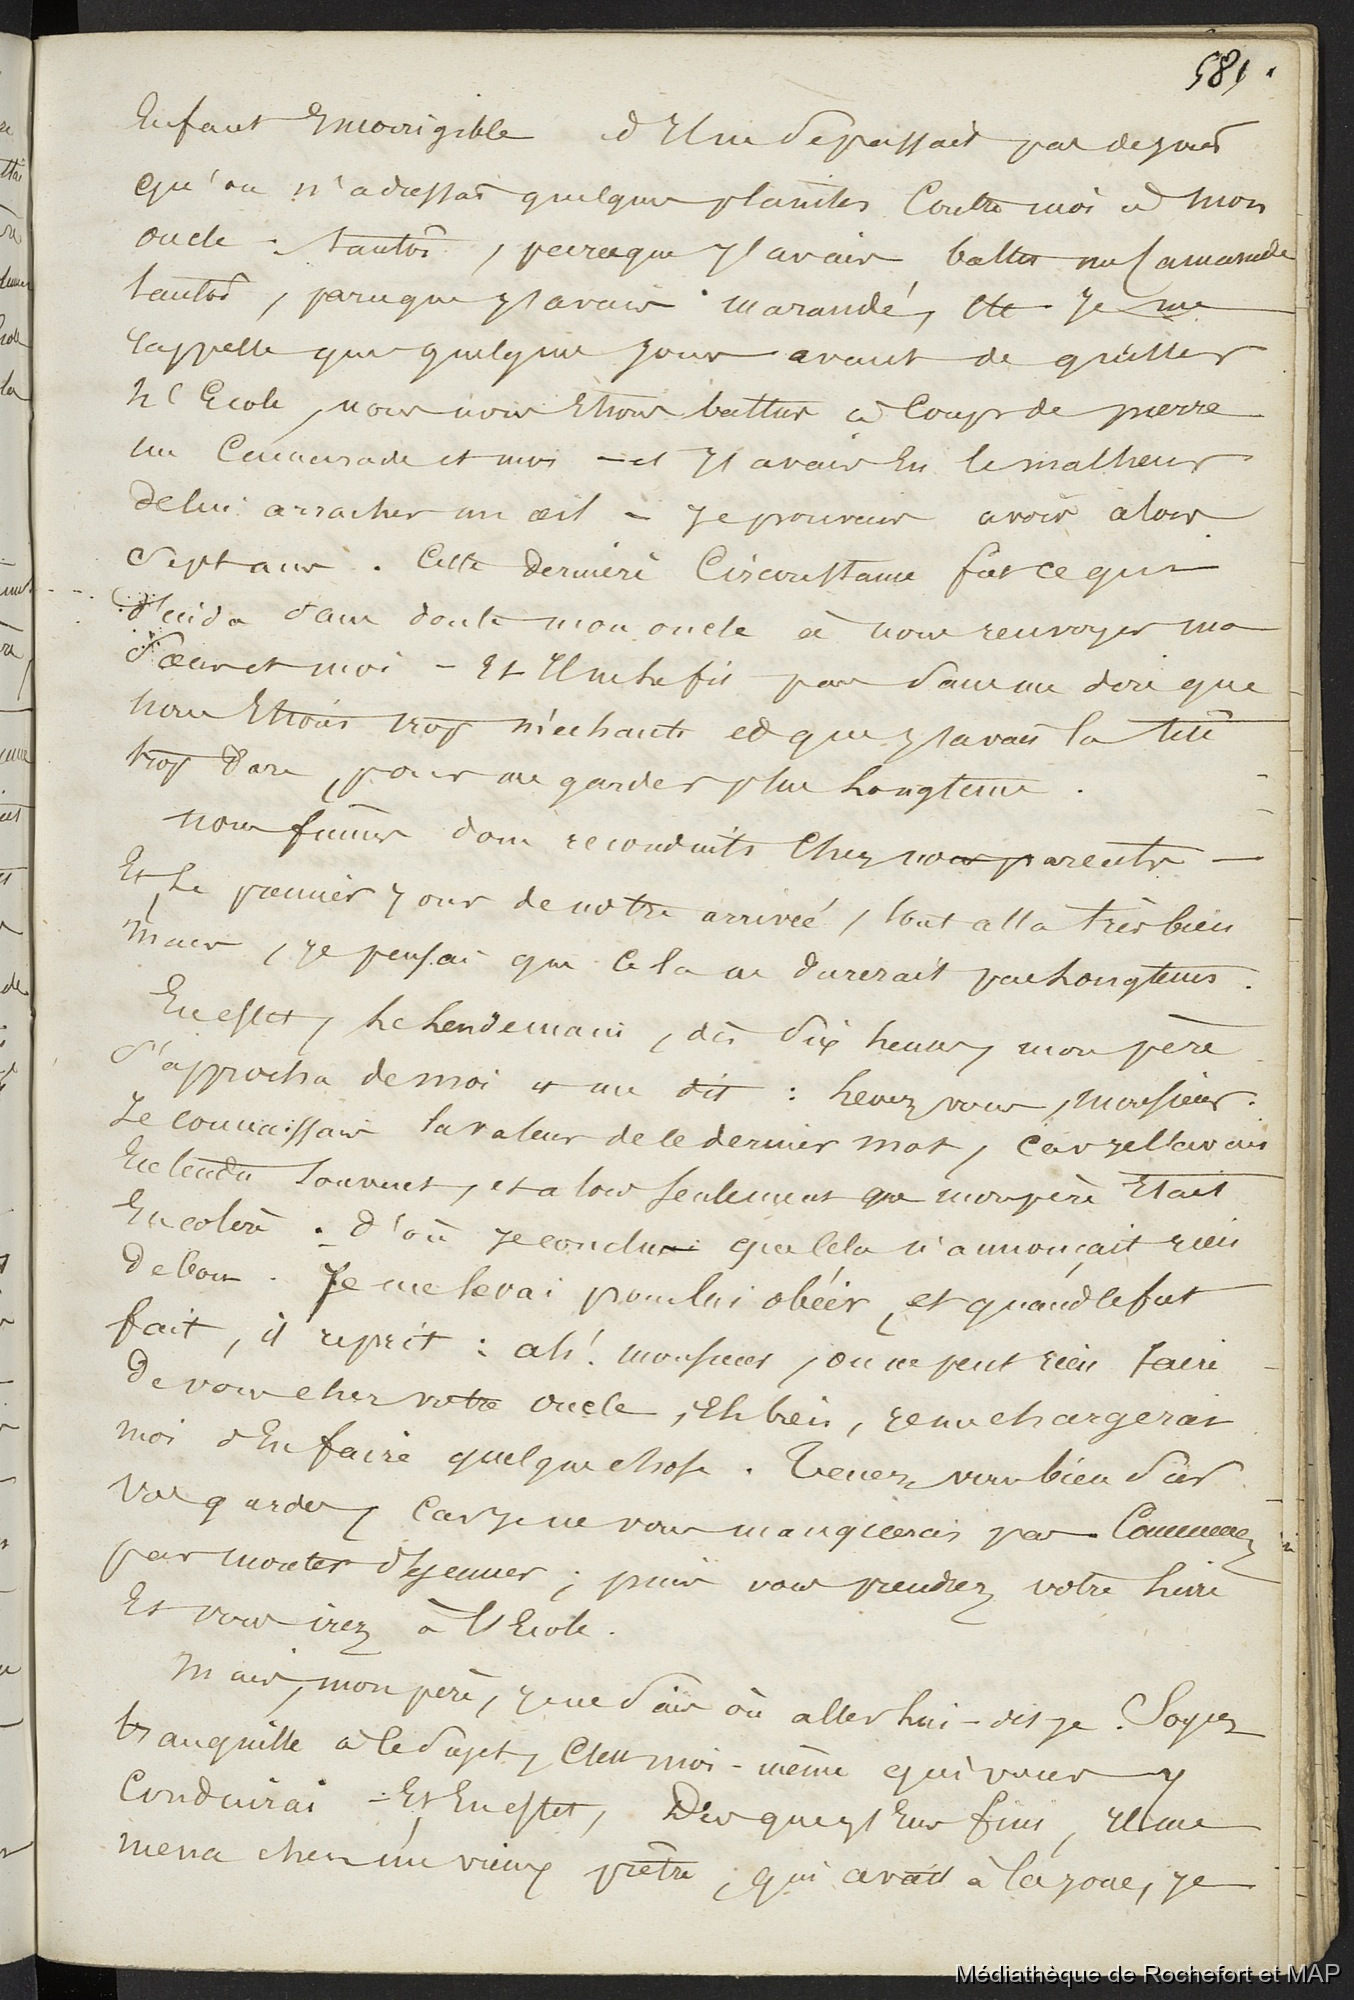 581.
Enfant Encorrigible et Il ne se passait pas de jours
qu'on n'adressat quelques plaintes Contre moi à mon
oncle. tantôt, parceque J'avais battu un Camarade
tantôt, parceque J'avais maraudé, etc Je me
rappelle que quelques jours avant de quitter
l'Ecole, nous nous Etions battus à Coups de pierre
un Camarade et moi - et J'avais Eu le malheur
de lui arracher un œil - Je pouvais avoir alors
Sept ans. Cette derniere Circonstance fut ce qui
décida Sans doute mon oncle à nous renvoyer ma
Sœur et moi - Et Il ne le fit pas Sans me dire que
nous Etions trop méchants et que J'avais la tête
trop dure, pour me garder plus Longtems.
Nous fûmes donc reconduits Chez nos parents -
Et Le premier Jour de notre arrivée, tout alla très bien
Mais, Je pensai que Cela ne durerait pas Longtems.
En effet, Le Lendemain, dès Six heures, mon père
S'approcha de moi et me dit : Levez vous, Monsieur.
Je connaissais la valeur de ce dernier mot, Car Je l'avais
Entendu Souvent, et alors Seulement que mon père Etait
En colère. D'où Je conclus que Cela n'annonçait rien
De bon. Je me levai pour lui obéir, et quand ce fut
fait, il reprit : ah! monsieur, on ne peut rien faire
De vous chez votre oncle, Eh bien, Je me chargerai
moi d'En faire quelque chose. Tenez vous bien Sur
vos gardes, Car Je ne vous manquerai pas. Commencez
par monter déjeuner ; puis vous prendrez votre livre
Et vous irez à l'Ecole.
Mais, mon père, Je ne Sais où aller Lui - dis Je. Soyez
tranquille à ce Sujet, C'est moi - même qui vous y
Conduirai - Et En effet, Dès que J'Eus fini, Il me
mena chez un vieux prêtre, qui avait à la joue, Je
Médiathèque de Rochefort et MAP